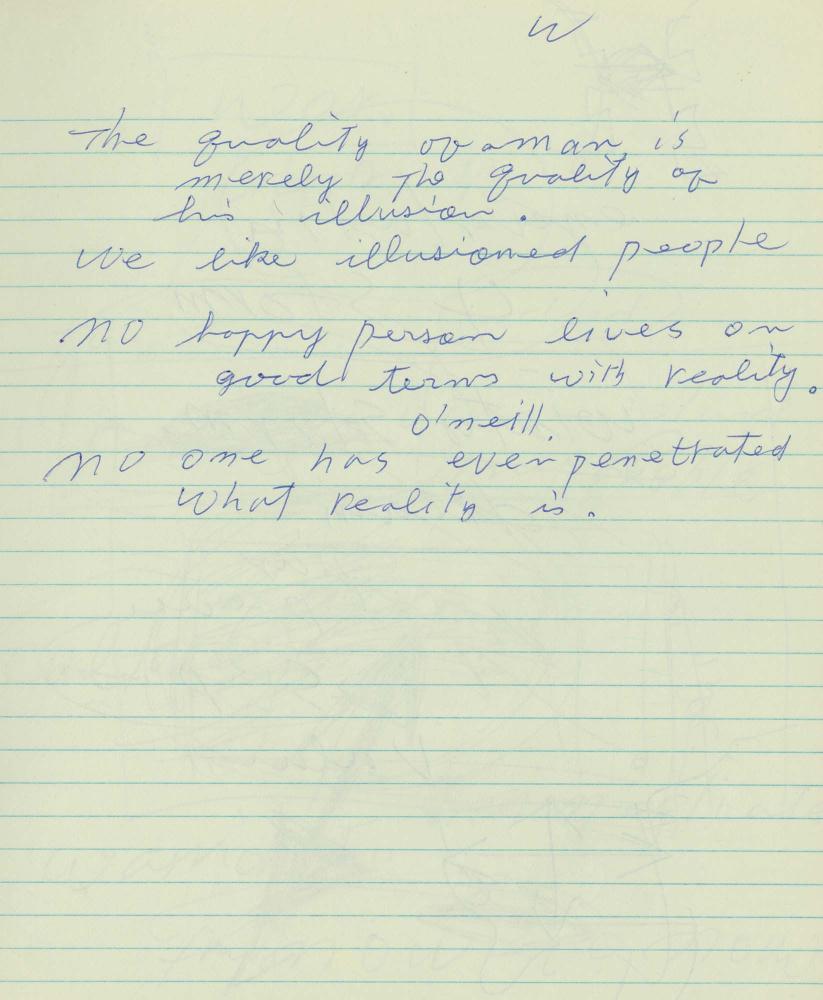 W
The quality of a man is
merely the quality of
his illusion.
We like illusioned people
no happy person lives on
good terms with reality.
O'neill.
no one has even penetrated
what reality is.